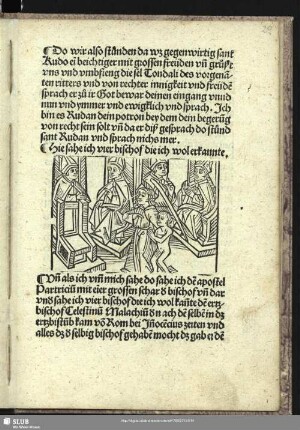 Do wir also stunden da wz gegenwirtig sant
Rudo ein beichtiger mit grossen freiden vñ grüßt
vns vnd vmbfieng die sel Tondali des vorgenã
ten ritters vnd von rechter innigkeit vnd freidẽ
sprach er zů ir Got bewar deinen eingang vnnd
nun vnd ymmer vnd ewigklich vnd sprach. Ich
bin es Rudan dein potron bey dem dein begerüg
von recht sein solt vñ da er diß gesprach do stůnd
sant Rudan vnd sprach nichs mer.
Hie sahe ich vier bischof die ich wol erkannte.
Vñ als ich vm̃ mich sahe do sahe ich dẽ apostel
Partriciũ mit eier grossen schar ď bischof vñ dar
vnď sahe ich vier bischof die ich wol kañte dẽ ertz
bischof Celestinũ Malachiũ ď n ach dẽ selbẽ in dz
ertzbistũb kam võ Rom bei Iñocẽcius zeiten vnd
alles dz ď selbig bischof gehabẽ mocht dz gab er dẽ
SLUB